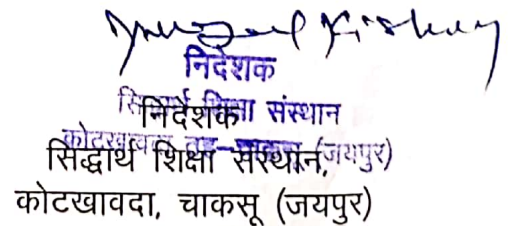 निदेशक
सिद्धार्थ शिक्षा संस्थान
निदेशक
कोटखावदा तह-चाकसू (जयपुर)
सिद्धार्थ शिक्षा संस्थान,
कोटखावदा, चाकसू (जयपुर)